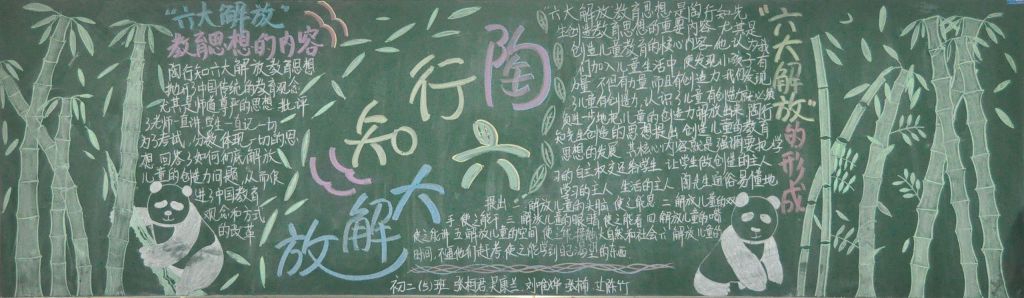 “六大解放”
教育思想的内容
陶行知六大解放教育思想
批评
了老师一直讲 学生一直记 一切
为了考试，分数体现一切的思
想 回答了如何解放
儿童的创造力问题 从而促
进了中国教育
观念和方式
的改革
陶行知
六大解放
“六大解放”教育思想 是陶行知先
生创造教育思想的重要内容 尤其是
创造儿童教育的核心内容 他认为我
们加入儿童生活中 便发现小孩子有
力量 不但有力量 而且有创造力 我们发现
了儿童有创造力 认识了儿童有创造力 就须
进一步地把儿童的创造力解放出来 陶行
知先生创造的思想提出 创造儿童的教育
思想的发展 其核心内容就是强调要把学
习的自主权还给学生 让学生做创造的主人
学习的主人 生活的主人 陶先生通俗易懂地
提出 一 解放儿童的头脑 使之能思 二 解放儿童的双
手 使之能干 三 解放儿童的眼睛 使之能看 四 解放儿童的嘴
使之能讲 五 解放儿童的空间 大自然和社会 六 解放儿童的
时间 不逼他们赶考 使之能学到自己渴望的东西
“六大解放”的形成
初二（5）班